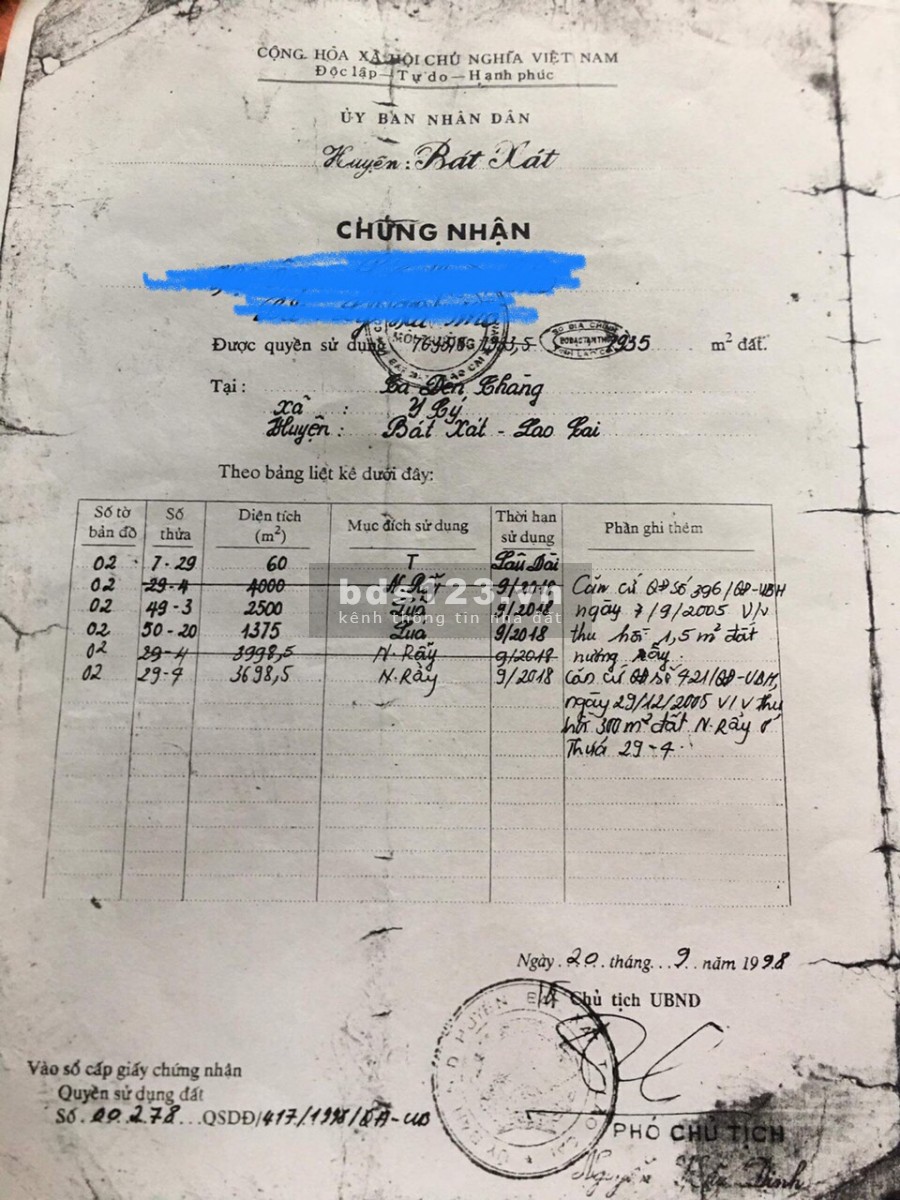 CỘNG HÒA XÃ HỘI CHỦ NGHĨA VIỆT NAM
Độc lập — Tự do — Hạnh phúc
ỦY BAN NHÂN DÂN
Huyện: Bát Xát
CHỨNG NHẬN
Được quyền sử dụng 7935 m² đất.
Tại:
Xã : Y Tý
Huyện : Bát Xát - Lao Cai
Theo bảng liệt kê dưới đây:
Số tờ bản đồ | Số thửa | Diện tích (m²) | Mục đích sử dụng | Thời hạn sử dụng | Phần ghi thêm
02 7-29 60 T Lâu Dài
02 29-4 4000 N.Rẫy 9/2018 Căn cứ QĐ Số 396/QĐ-UBH
02 49-3 2500 Lúa 9/2018 ngày 7/9/2005 V/v
02 50-20 1375 Lúa 9/2018 thu hồi 1,5 m² đất
02 29-4 3998,5 N.Rẫy 9/2018 nương rẫy.
02 29-4 3698,5 N.Rẫy 9/2018 Căn cứ QĐ số 421/QĐ-UBH,
ngày 29/12/2005 V/V thu
hồi 300 m² đất N.Rẫy ở
Thửa 29-4.
bds123.vn
kênh thông tin nhà đất
Ngày 20 tháng 9 năm 1998
Chủ tịch UBND
Vào sổ cấp giấy chứng nhận
Quyền sử dụng đất
Số 00278 QSDĐ/417/1998/QĐ-UB
PHÓ CHỦ TỊCH